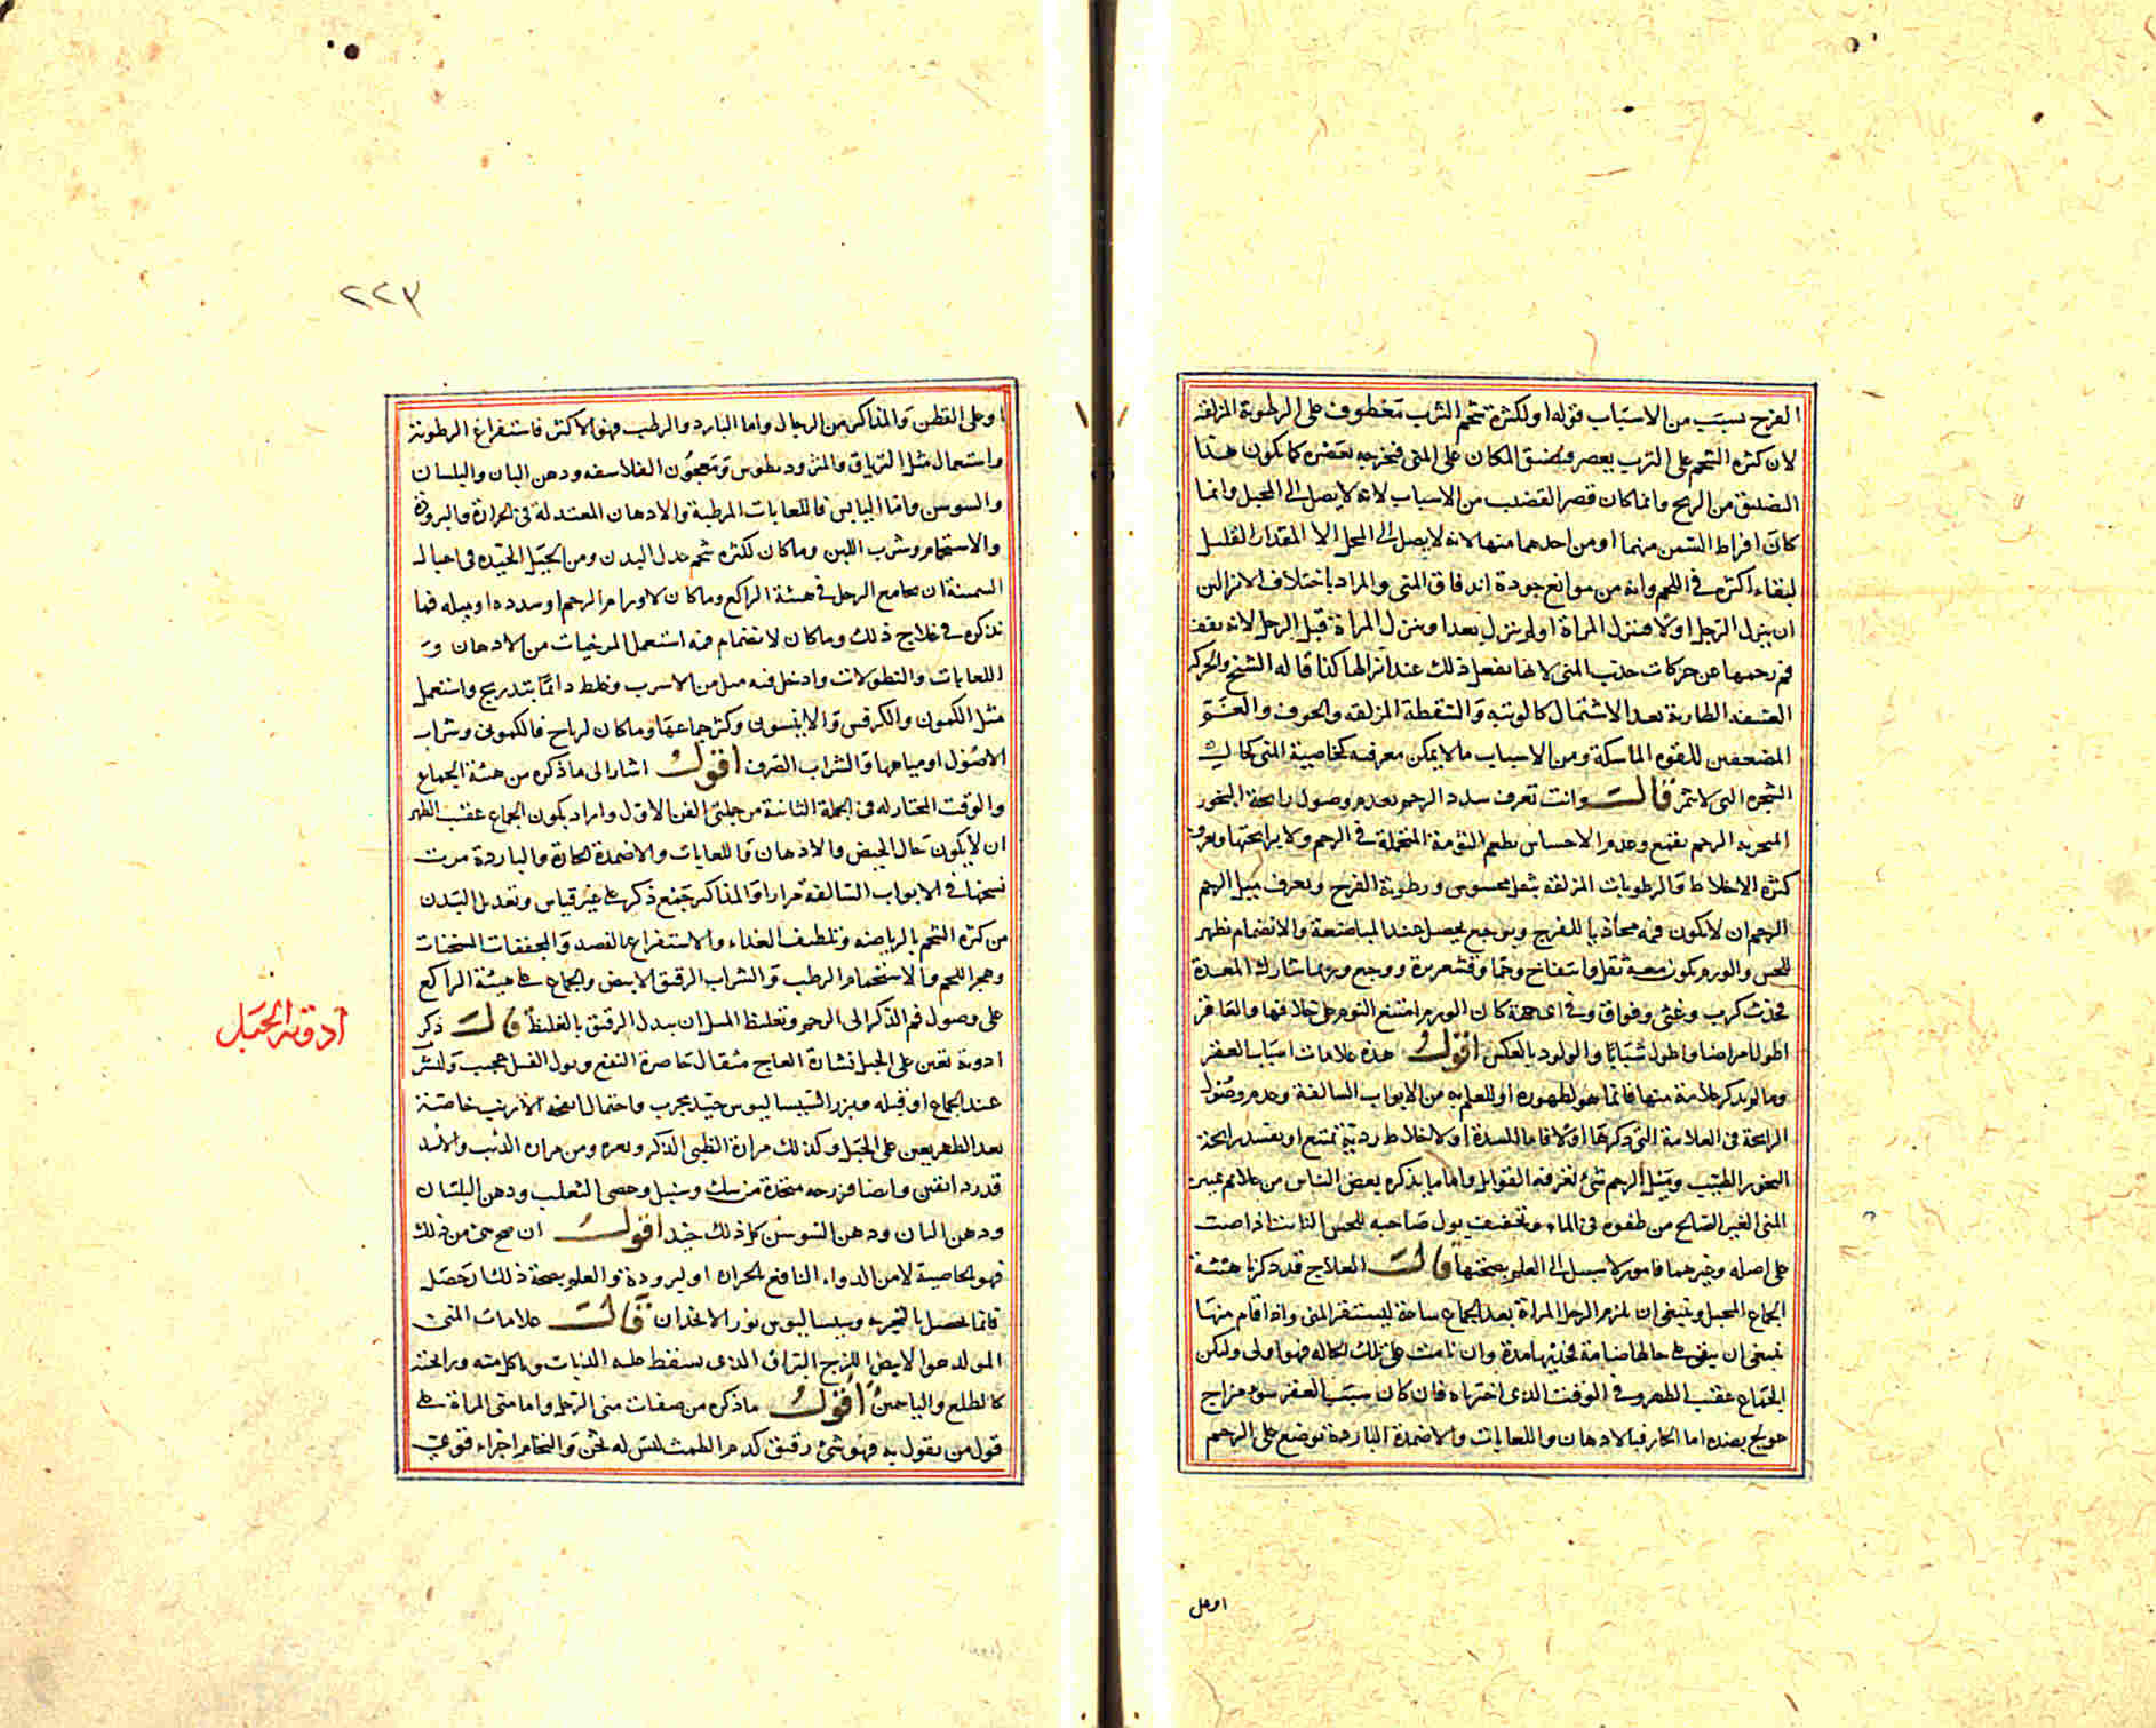 الفرج بسبب من الاسباب قوله او لكثرة شحم الثرب معطوف على الرطوبة المزلقة
لان كثرة الشحم على الثرب يعصر فيضيق المكان على المنى فيخرجه بعصره كما يكون هذا
التضييق من الريح وانما كان قصر القضيب من الاسباب لانه لا يصل الى المحبل وانما
كان افراط السمن منهما او من احدهما منها لانه لا يصل الى المحل الا المقدار القليل
لبقاء اكثره فى اللحم وانه من موانع جودة اندفاق المنى والمراد باختلاف الانزالين
ان ينزل الرجل اولا فتنزل المراة او لم تنزل بعد او تنزل المراة قبل الرجل لانه يقف
فم رحمها عن حركات جذب المنى لانها تفعل ذلك عند انزالها كذا قاله الشيخ والحركة
العنيفة الطارية بعد الاشتمال كالوثبة والسقطة المزلقة والخوف و
المضعفين للقوة الماسكة ومن الاسباب ما لا يمكن معرفته كخاصية المنى كحال
الشجرة التى لا تثمر قالت وانت تعرف سدد الرحم بعدم وصول رايحة البخور
المبخر به الرحم بقمع وعدم الاحساس بطعم الثومة المتحملة فى الرحم ولا برايحتها ويعرف
كثرة الاخلاط والرطوبات المزلقة بثقل محسوس ورطوبة الفرج ويعرف ميل الرحم
الرحم ان لا يكون فمه محاذيا للفرج وبوجع يحصل عند المباضعة والانضمام يظهر
للحس والورم يكون معه ثقل وانتفاخ وحمى وقشعريرة ووجع وربما شارك المعدة
فحدث كرب وغثى وفواق وفى اى جهة كان الورم امتنع النوم على خلافها والعاقر
اطول امراضا واطول شبابا والولود بالعكس اقول هذه علامات اسباب العقر
وما لم يذكر علامة منها فانما هو لظهوره او للعلم به من الابواب السالفة وعدم وصول
الرايحة فى العلامة التى ذكرها اولا فاما للسدة او لاخلاط ردية تمنع او تفسد رايحة
البخور الطيب وميل الرحم شئ تعرفه القوابل واما ما يذكره بعض الناس من علامة تميز
المنى الغير الصالح من طفوه فى الماء وتجفيف بول صاحبه للخس النابت اذا صب
على اصله وغيرهما فامور لا سبيل الى العلم بصحتها قالت العلاج قد ذكرنا هيئة
الجماع المحبل وينبغى ان يلزم الرجل المراة بعد الجماع ساعة ليستقر المنى واذا قام منها
فينبغى ان تبقى على حالها ضامة فخذيها مدة وان نامت على تلك الحالة فهو اولى وليكن
الجماع عقيب الطهر وفى الوقت الذى اخترناه فان كان سبب العقر سوء مزاج
عولج بضده اما الحار فبالادهان واللعابات والاضمدة الباردة توضع على الرحم
او على
٢٢٣
او على القطن والمذاكير من الرجال واما البارد والرطب فهو الاكثر فاستفراغ الرطوبة
واستعمال مثل الترياق والمثروديطوس ومعجون الفلاسفة ودهن البان والبلسان
والسوسن واما اليابس فاللعابات المرطبة والادهان المعتدلة فى الحرارة والبرودة
والاستحمام وشرب اللبن وما كان لكثرة شحم عدل البدن ومن الحيل الجيدة فى احبال
السمينة ان يجامع الرجل فى هيئة الراكع وما كان لاورام الرحم او سدده او ميله فبما
نذكره فى علاج ذلك وما كان لانضمام فمه استعمل المرخيات من الادهان و
اللعابات والنطولات وادخل فيه ميل من الاسرب وغلظ دائما بتدريج واستعمل
مثل الكمون والكرفس والانيسون وكثر جماعها وما كان لرياح فالكمونى وشراب
الاصول او مياهها والشراب الصرف اقول اشار الى ما ذكره من هيئة الجماع
والوقت المختار له فى الجملة الثانية من جملتى الفن الاول واراد بكون الجماع عقيب الطهر
ان لا يكون حال الحيض والادهان واللعابات والاضمدة الحارة والباردة مرت
نسخها فى الابواب السالفة مرارا والمذاكير جمع ذكر على غير قياس وتعديل البدن
من كثرة الشحم بالرياضة وتلطيف الغذاء والاستفراغ بالفصد والمجففات المسخنات
وهجر اللحم والاستحمام الرطب والشراب الرقيق الابيض والجماع على هيئة الراكع
على وصول فم الذكر الى الرحم وتغليظ الميل ان يبدل الرقيق بالغليظ قالت ذكر
ادوية تعين على الحبل نشارة العاج مثقال حاضرة النفع وبول الفيل عجيب وليشر
عند الجماع او قبله وبزر السيساليوس جيد مجرب واحتمال انفحة الارنب خاصة
بعد الطهر يعين على الحبل وكذلك مرارة الظبى الذكر وبعره ومن مرارة الذئب والاسد
قدر دانقين وايضا فرزجة متخذة من مسك وسنبل وخصى الثعلب ودهن البلسان
ودهن البان ودهن السوسن كل ذلك جيد اقول ان صح شئ من ذلك
فهو لخاصية لا من الدواء النافع لحرارة او لبرودة والعلم بصحة ذلك ان حصل
فانما يحصل بالتجربة وسيساليوس بزر الانجدان قالت علامات المنى
المولد هو الابيض اللزج البراق الذى يسقط عليه الذباب وياكل منه ورايحته
كالطلع والياسمين اقول ما ذكره من صفات منى الرجل واما منى المراة على
قول من يقول به فهو شئ رقيق كدم الطمث ليس له ثخن والتحام اجزاء قوى
ادوية الحبل